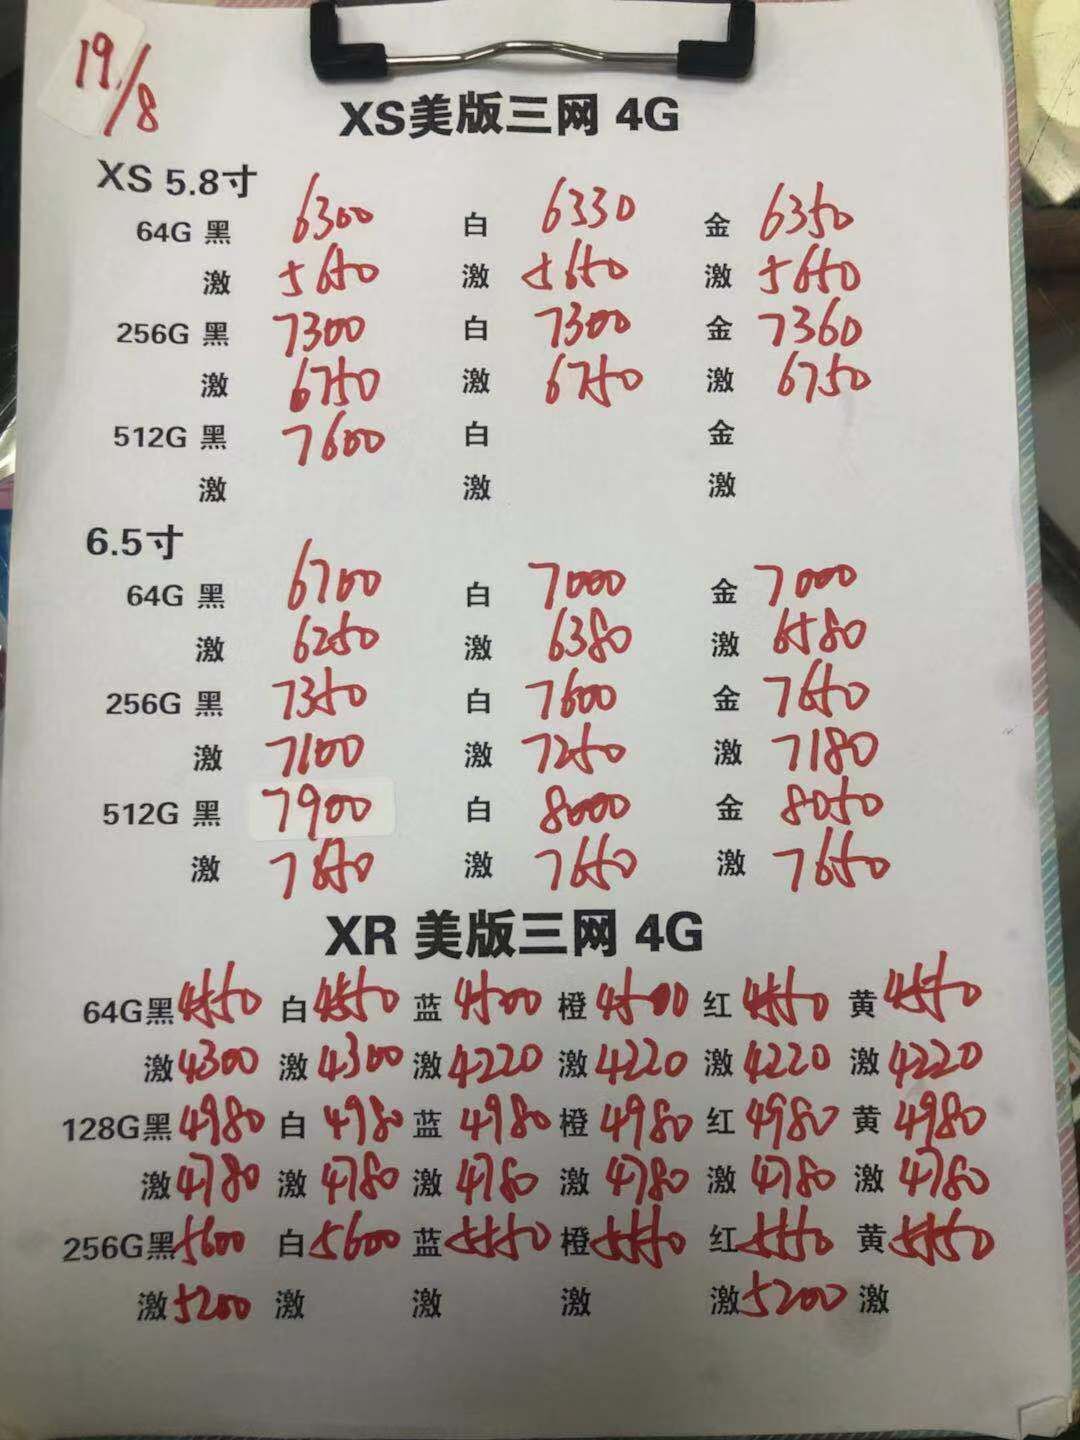 19/8
XS美版三网 4G
XS 5.8寸
64G 黑 6300 白 6330 金 6350
激 5650 激 5650 激 5650
256G 黑 7300 白 7300 金 7360
激 6750 激 6750 激 6750
512G 黑 7600 白 金
激 激 激
6.5寸
64G 黑 6700 白 7000 金 7000
激 6250 激 6380 激 6580
256G 黑 7350 白 7600 金 7650
激 7100 激 7250 激 7180
512G 黑 7900 白 8000 金 8050
激 激 7650 激 7650
XR 美版三网 4G
64G黑 4550 白 4550 蓝 4500 橙 4500 红 4550 黄 4550
激 4300 激 4300 激 4220 激 4220 激 4220 激 4220
128G黑 4980 白 4980 蓝 4980 橙 4980 红 4980 黄 4980
激 4780 激 4780 激 4780 激 4780 激 4780 激 4780
256G黑 5600 白 5600 蓝 5550 橙 5550 红 5550 黄 5550
激 5200 激 激 激 激 5200 激